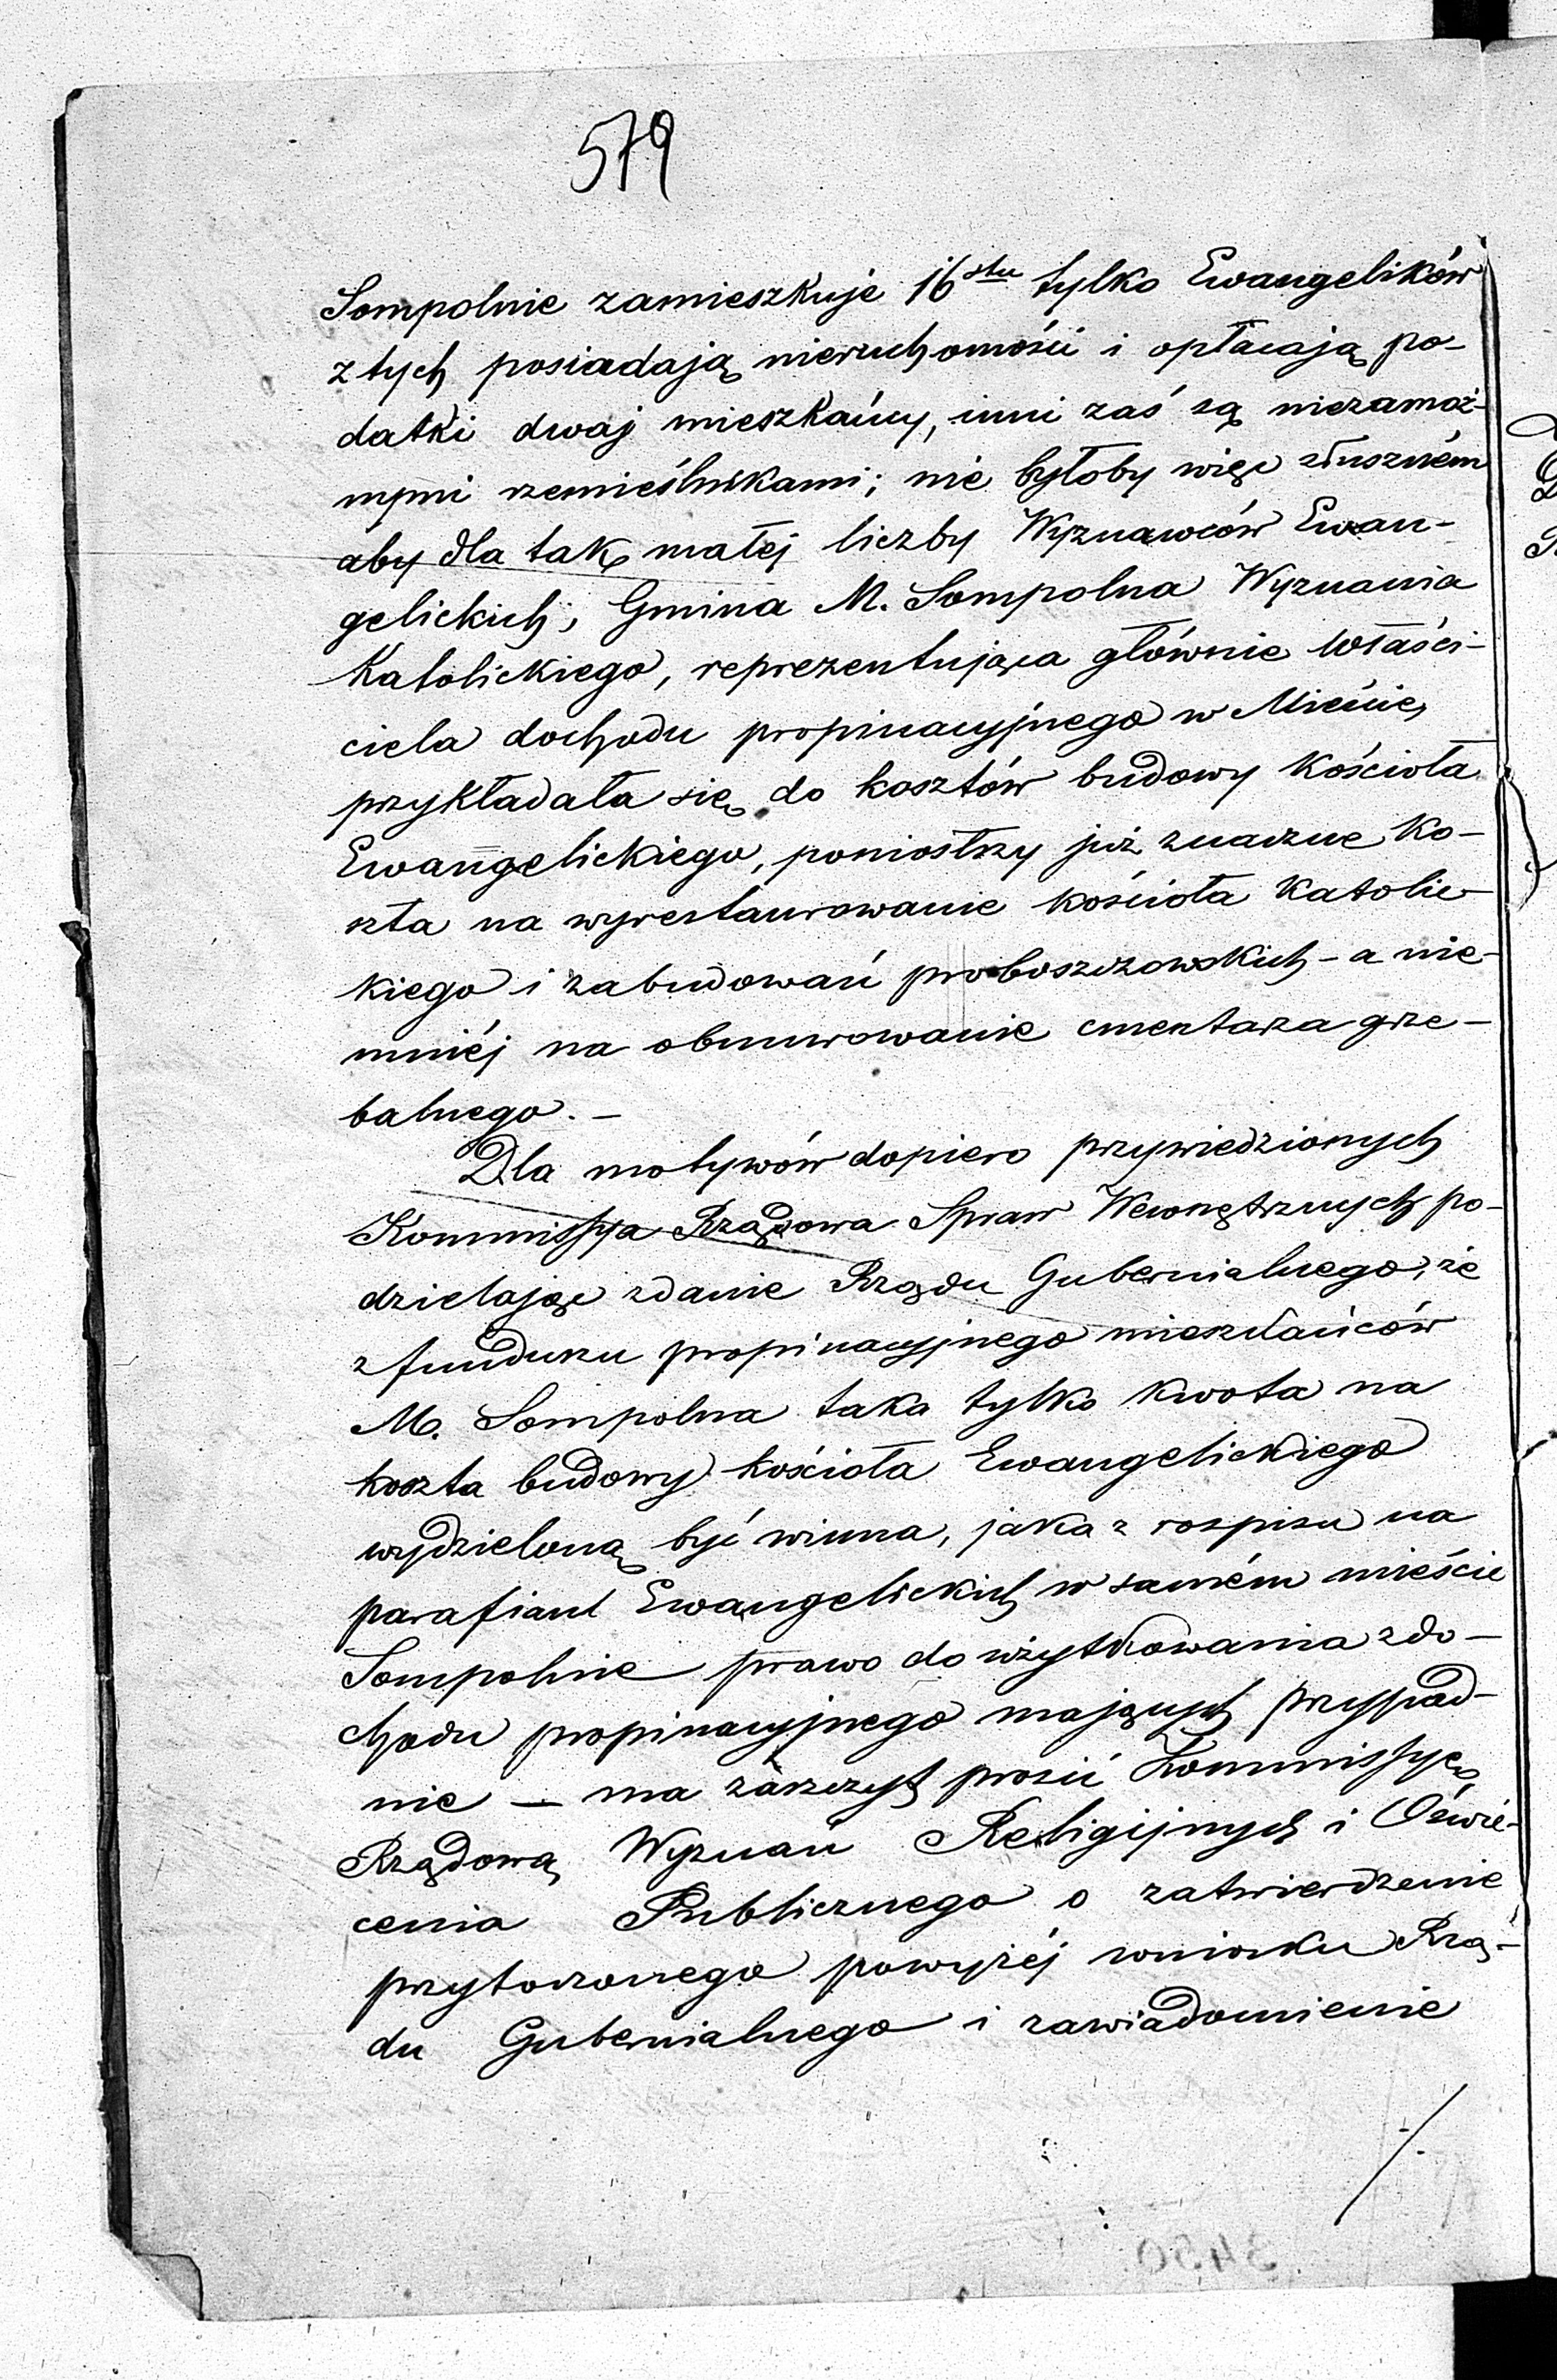 579
Sompolnie zamieszkuje 16stu tylko Ewangelików
z tych posiadają nieruchomości i opłacają po-
datki dwaj mieszkańcy, inni zaś są niezamoż-
nymi rzemieślnikami; nie byłoby więc słuszném
aby dla tak małéj liczby Wyznawców Ewan-
gelickich, Gmina M. Sompolna Wyznania
Katolickiego, reprezentująca głównie właści-
ciela dochodu propinacyjnego w Mieście,
przykładała się do kosztów budowy kościoła
Ewangelickiego, poniosłszy już znaczne ko-
szta na wyrestaurowanie kościoła Katolic-
kiego i zabudowań proboszczowskich - a nie-
mniéj na obmurowanie cmentarza grze-
balnego. -
Dla motywów dopiero przywiedzionych
Kommissya Rządowa Spraw Wewnętrznych po-
dzielając zdanie Rządu Gubernialnego, że
z funduszu propinacyjnego mieszkańców
M. Sompolna taka tylko kwota na
koszta budowy kościoła Ewangelickiego
wydzieloną być winna, jaka z rospisu na
parafian Ewangelickich w samém mieście
Sompolnie prawo do użytkowania z do-
chodu propinacyjnego mających przypad-
nie — ma zaszczyt prosić Kommissyę
Rządową Wyznań Religijnych i Oświe-
cenia Publicznego o zatwierdzenie
przytoczonego powyżéj wniosku Rzą-
du Gubernialnego i zawiadomienie
./.